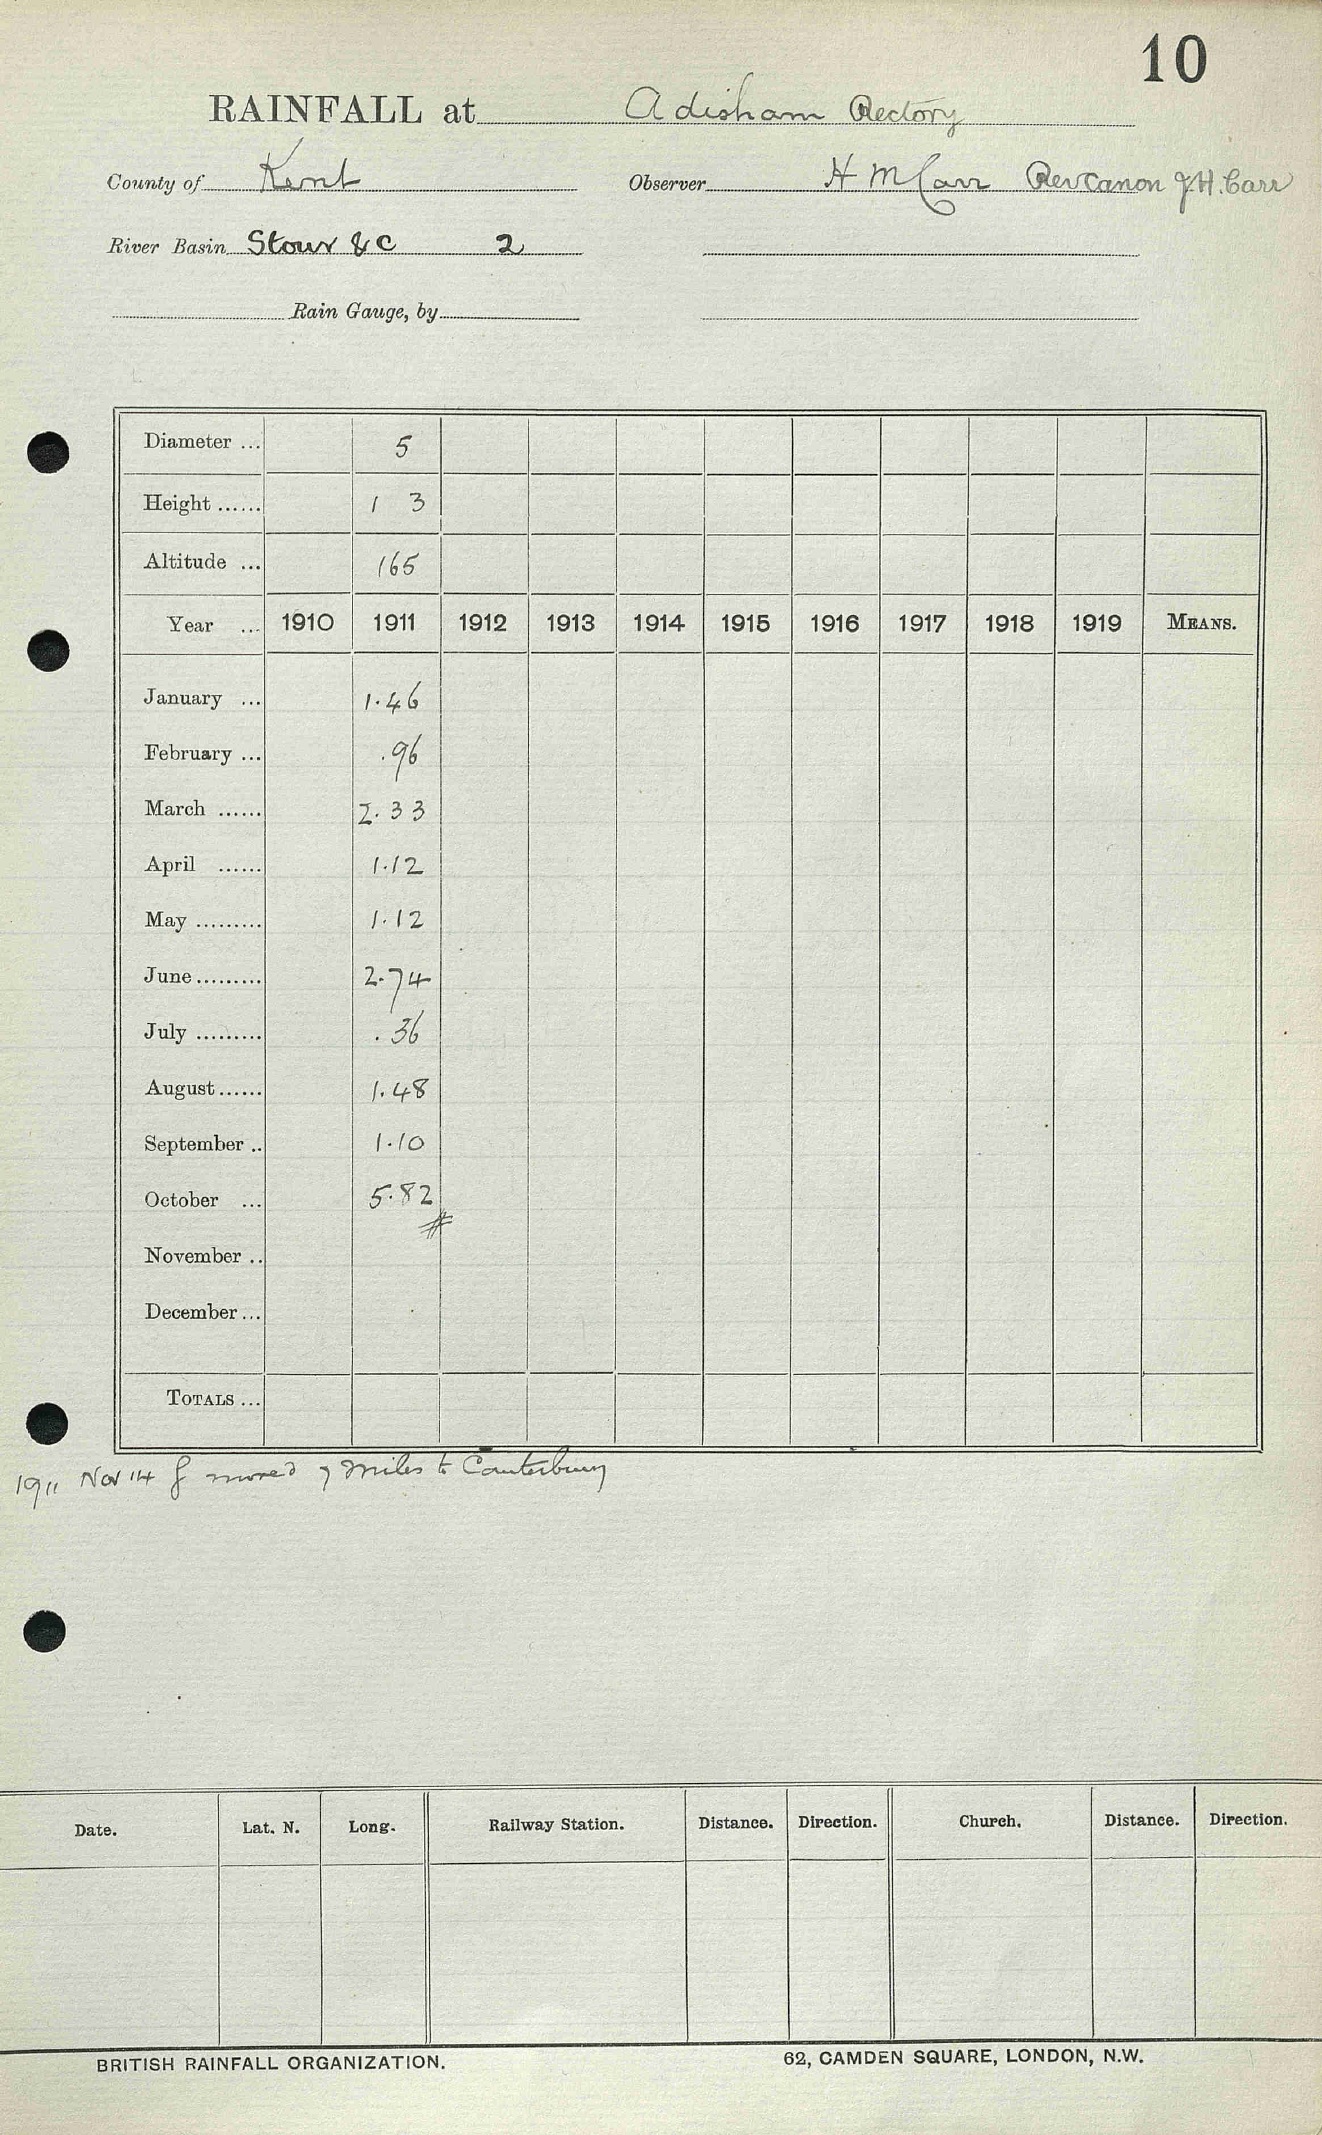 10
RAINFALL at Adisham Rectory
County of Kent Observer H M Carr Rev Canon J.H. Carr
River Basin Stour &c 2
Rain Gauge, by
Diameter ... 5
Height ...... 1 3
Altitude ... 165
Year ... 1910 1911 1912 1913 1914 1915 1916 1917 1918 1919 MEANS.
January ... 1.46
February ... .96
March ...... 2.33
April ...... 1.12
May ......... 1.12
June ......... 2.74
July ......... .36
August ...... 1.48
September .. 1.10
October ... 5.82
#
November ..
December ...
TOTALS ...
1911 Nov 14 g moved 7 miles to Canterbury
Date. Lat. N. Long. Railway Station. Distance. Direction. Church. Distance. Direction.
BRITISH RAINFALL ORGANIZATION. 62, CAMDEN SQUARE, LONDON, N.W.